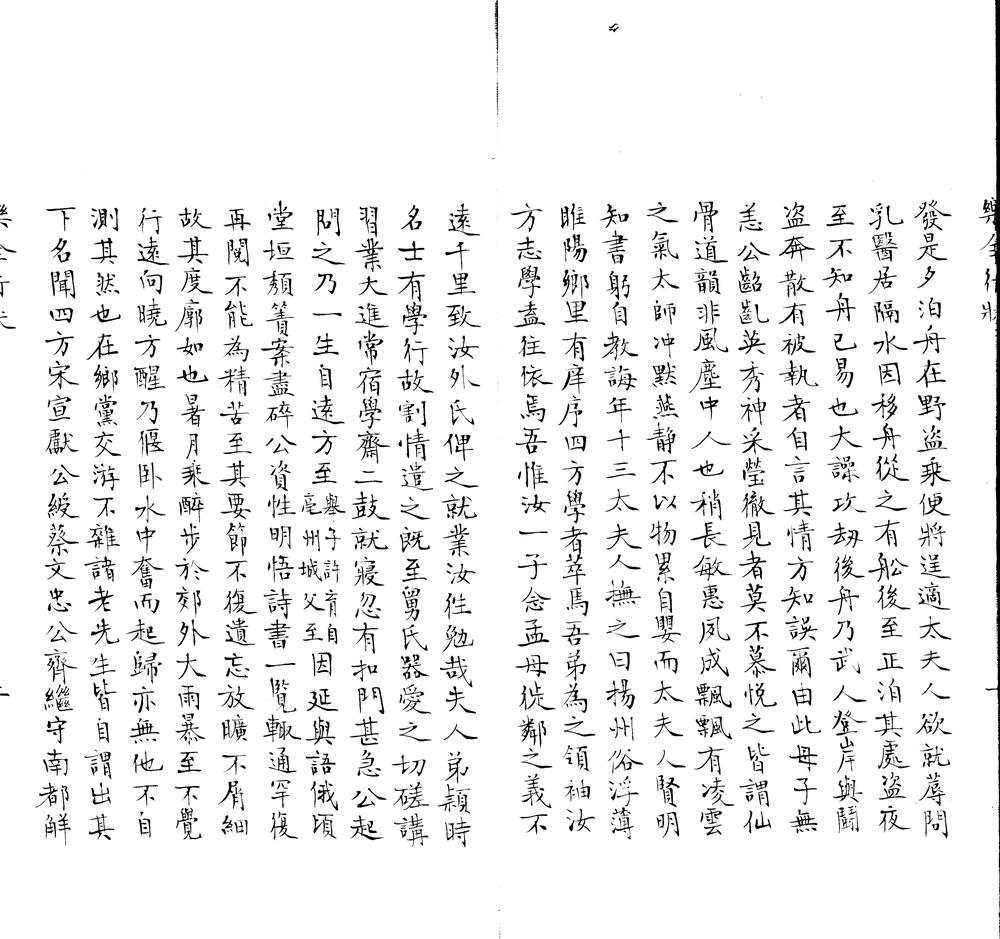 樂全行狀
一
發是夕泊舟在野盜乘便將逞適太夫人欲就蓐問
乳醫居隔水因移舟從之有舩後至正泊其處盜夜
至不知舟已易也大譟攻刼後舟乃武人登岸與鬭
盜奔散有被執者自言其情方知誤爾由此母子無
恙公齠齔英秀神采瑩徹見者莫不慕悦之皆謂仙
骨道韻非風塵中人也稍長敏惠夙成飄飄有凌雲
之氣太師冲默燕静不以物累自嬰而太夫人賢明
知書躬自教誨年十三太夫人撫之曰揚州俗浮薄
睢陽鄉里有庠序四方學者萃焉吾弟為之領袖汝
方志學盍往依焉吾惟汝一子念孟母徙鄰之義不
遠千里致汝外氏俾之就業汝徃勉哉夫人弟穎時
名士有學行故割情遣之既至舅氏器愛之切磋講
習業大進常宿學齋二鼓就寢忽有扣門甚急公起
問之乃一生自遠方至舉子許育自亳州城父至因延與語俄頃
堂垣頽簀案盡碎公資性明悟詩書一覽輙通罕復
再閱不能為精苦至其要節不復遺忘放曠不屑細
故其度廓如也暑月乘醉步於郊外大雨暴至不覺
行遠向曉方醒乃偃卧水中奮而起歸亦無他不自
測其然也在鄉黨交游不雜諸老先生皆自謂出其
下名聞四方宋宣獻公綬蔡文忠公齊繼守南都觧